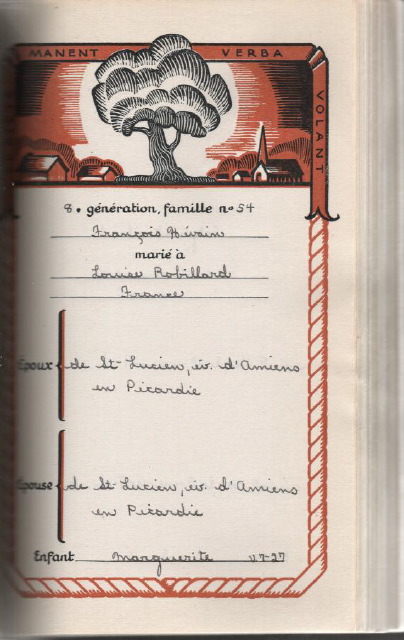 MANENT VERBA
VOLANT
8e génération, famille no 54
François Hévain
marié à
Louise Robillard
France
Époux de St-Lucien, év. d'Amiens
en Picardie
Épouse de St-Lucien, év. d'Amiens
en Picardie
Enfant Marguerite V-7-27